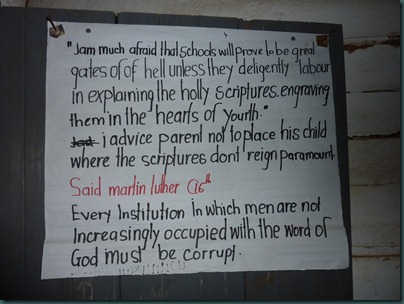 "Jam much afraid that schools will prove to be great
gates of of hell unless they deligently labour
in explaining the holly scriptures. engraving
them in the hearts of yourth."
i advice parent not to place his child
where the scriptures dont reign paramount.
Said martin luther 16th
Every Institution in which men are not
Increasingly occupied with the word of
God must be corrupt.